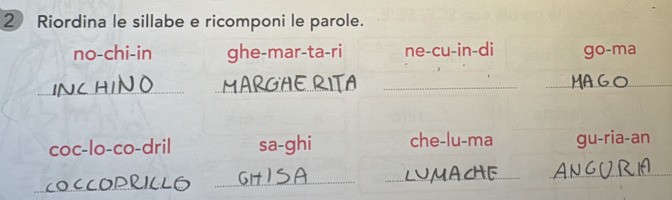 2 Riordina le sillabe e ricomponi le parole.
no-chi-in ghe-mar-ta-ri ne-cu-in-di go-ma
INCHINO MARGHERITA MAGO
coc-lo-co-dril sa-ghi che-lu-ma gu-ria-an
COCCODRILLO GHISA LUMACHE ANGURIA